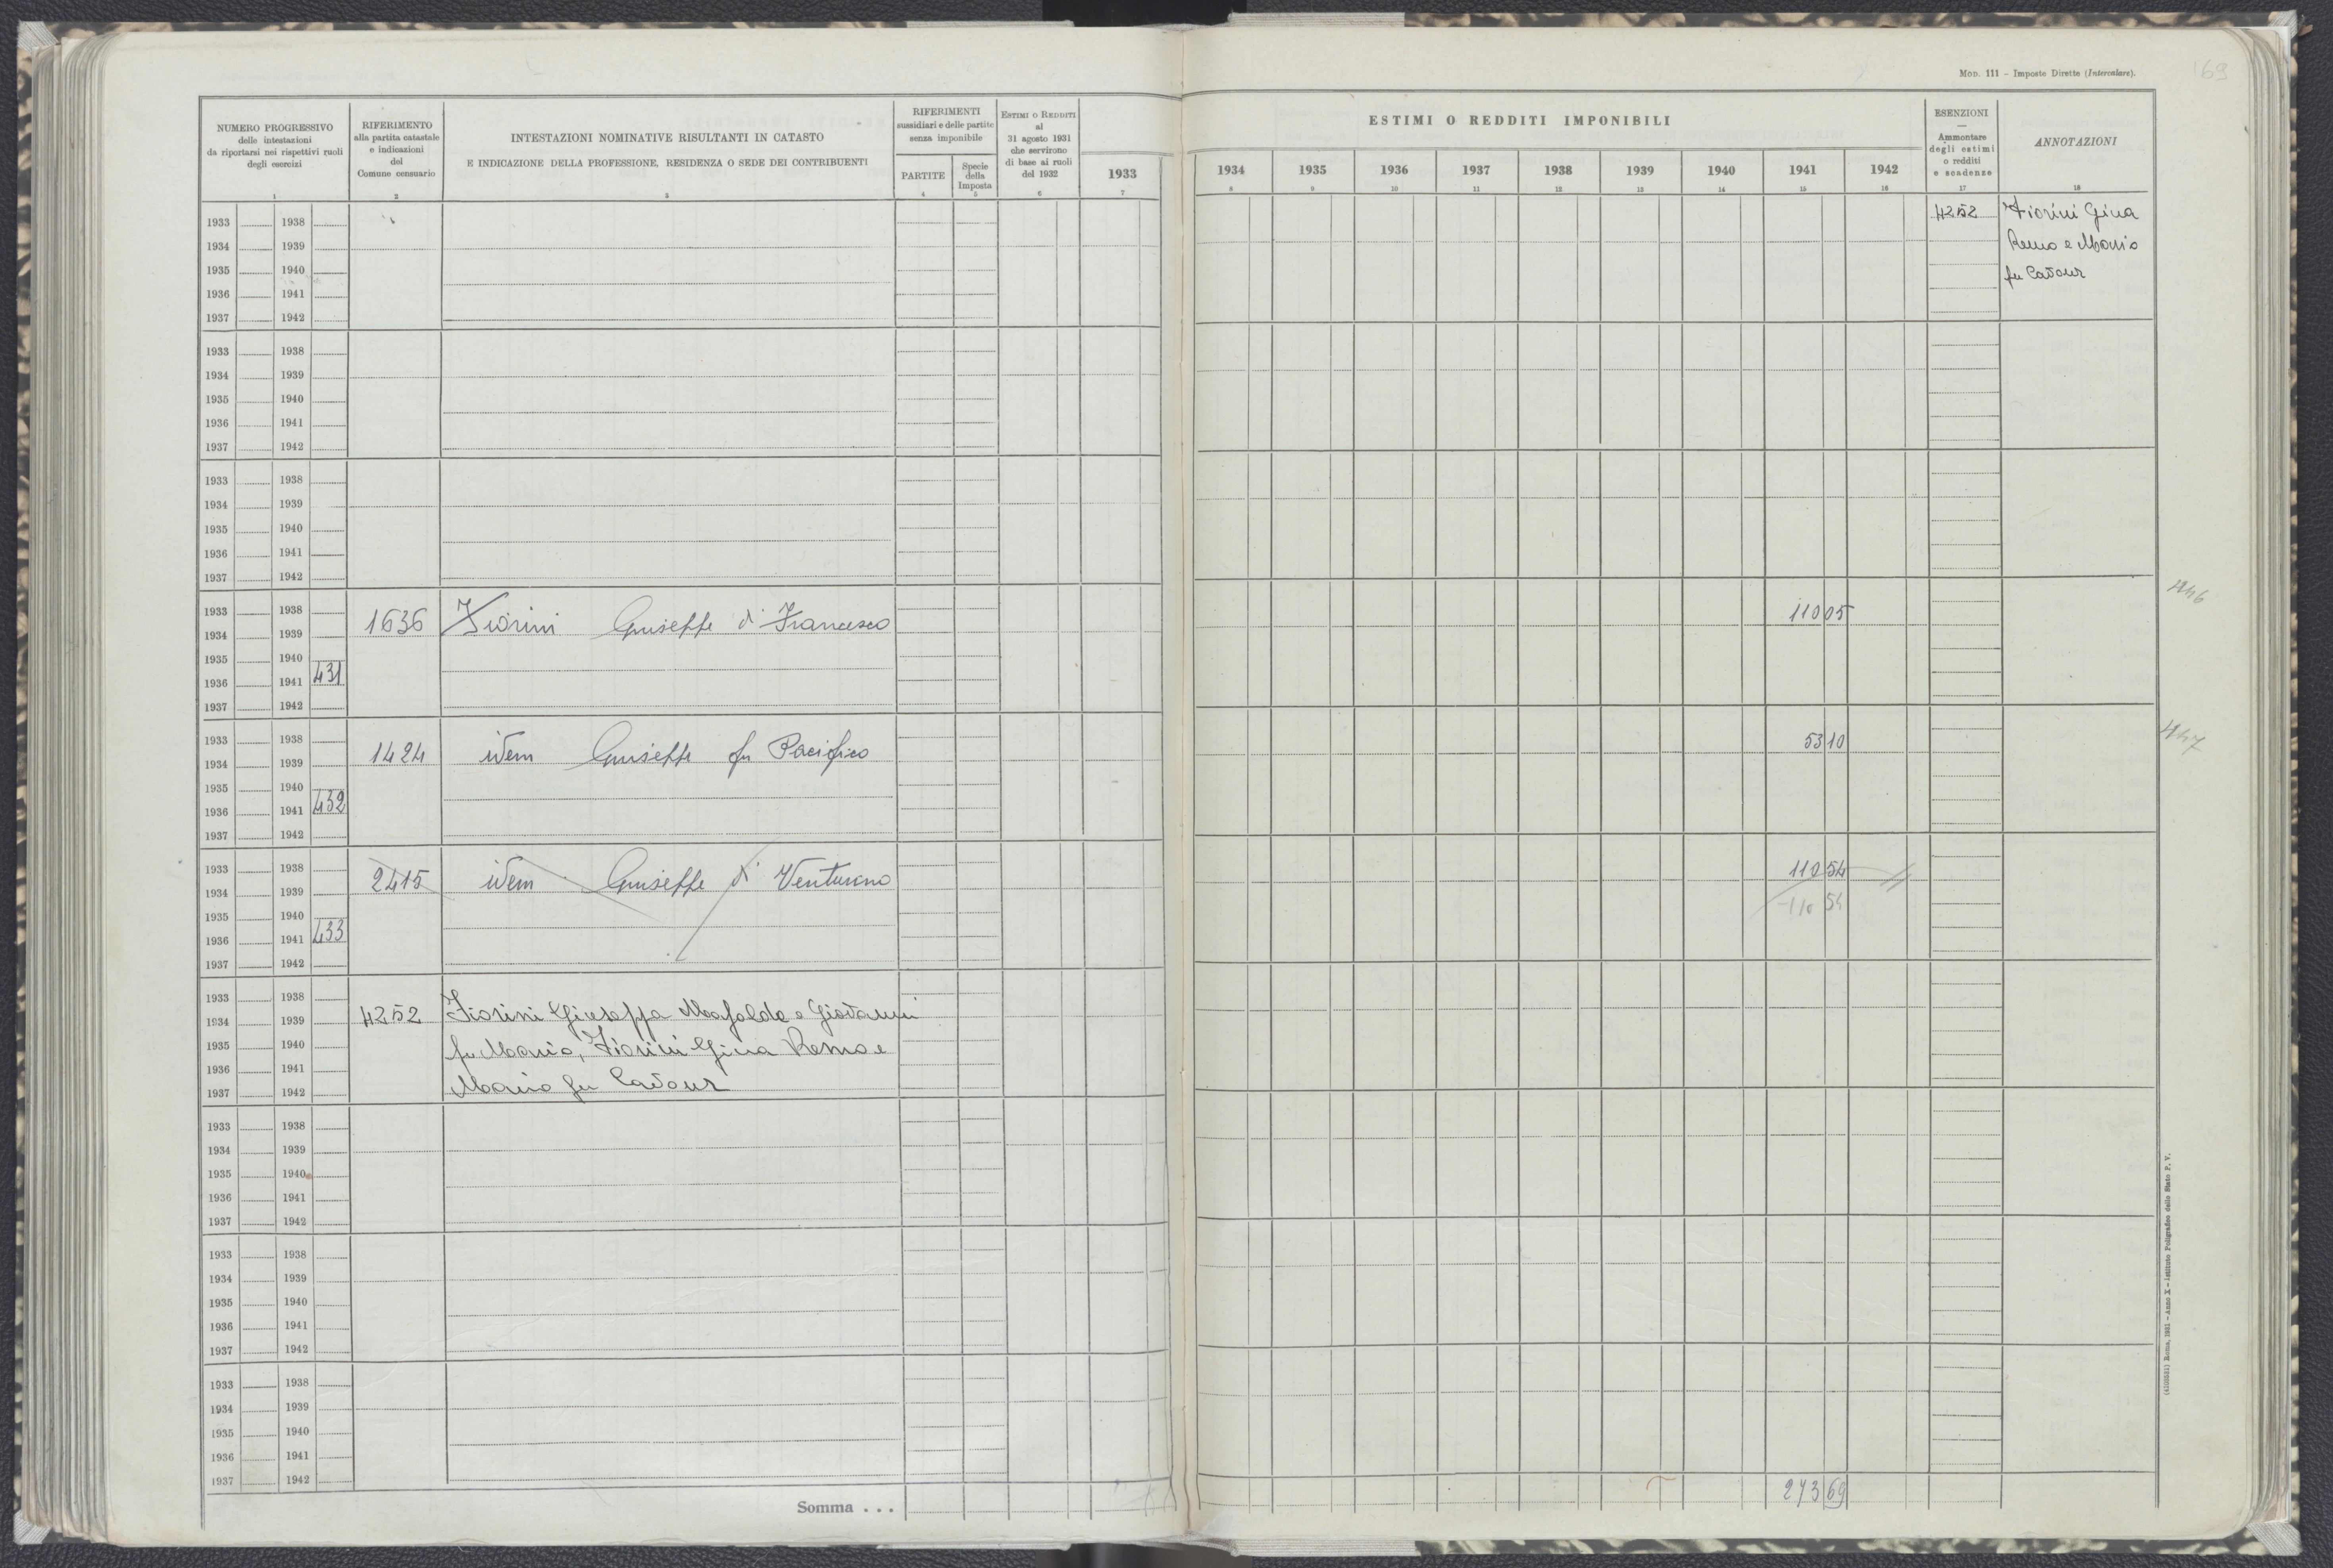 Mod. 111 – Imposte Dirette (Intercalare).
169
NUMERO PROGRESSIVO
delle intestazioni
da riportarsi nei rispettivi ruoli
degli esercizi
1
RIFERIMENTO
alla partita catastale
e indicazioni
del
Comune censuario
2
INTESTAZIONI NOMINATIVE RISULTANTI IN CATASTO
E INDICAZIONE DELLA PROFESSIONE, RESIDENZA O SEDE DEI CONTRIBUENTI
3
RIFERIMENTI
sussidiari e delle partite
senza imponibile
PARTITE
4
Specie
della
Imposta
5
Estimi o Redditi
al
31 agosto 1931
che servirono
di base ai ruoli
del 1932
6
1933
7
ESTIMI O REDDITI IMPONIBILI
1934 1935 1936 1937 1938 1939 1940 1941 1942
8 9 10 11 12 13 14 15 16
ESENZIONI
—
Ammontare
degli estimi
o redditi
e scadenze
17
ANNOTAZIONI
18
1933 1938
1934 1939
1935 1940
1936 1941
1937 1942
4252 Fiorini Gina
Remo e Mario
fu Cavour
1933 1938
1934 1939
1935 1940
1936 1941
1937 1942
1933 1938
1934 1939
1935 1940
1936 1941
1937 1942
1933 1938
1934 1939
1935 1940
1936 1941 431
1937 1942
1636 Fiorini Giuseppe di Francesco 110 05
446
1933 1938
1934 1939
1935 1940
1936 1941 432
1937 1942
1424 idem Giuseppe fu Pacifico 53 10
447
1933 1938
1934 1939
1935 1940
1936 1941 433
1937 1942
2415 idem Giuseppe di Venturino 110 54
-110 54
1933 1938
1934 1939
1935 1940
1936 1941
1937 1942
4252 Fiorini Giuseppa Mafalda e Giovanni
fu Mario, Fiorini Gina Remo e
Mario fu Cavour
1933 1938
1934 1939
1935 1940
1936 1941
1937 1942
1933 1938
1934 1939
1935 1940
1936 1941
1937 1942
1933 1938
1934 1939
1935 1940
1936 1941
1937 1942
Somma . . . 273 69
Roma, 1931 – Anno X – Istituto Poligrafico dello Stato P. V.